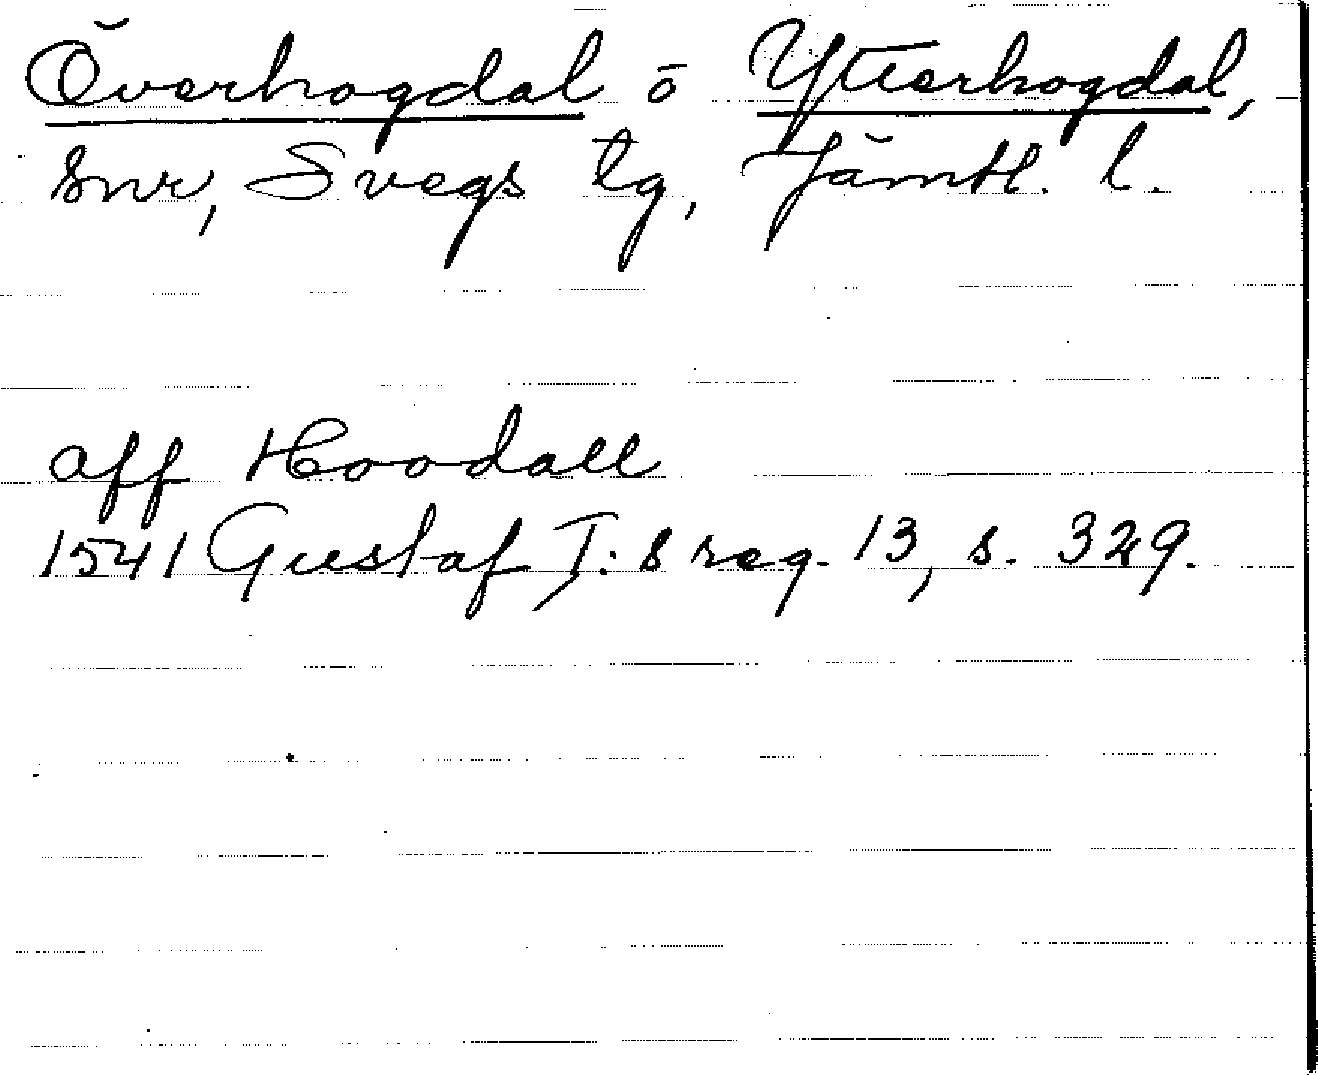 Överhogdal ö Ytterhogdal,
snr, Svegs tg, Jämtl. l.
aff Hoodall
1541 Gustaf I:s reg. 13, s. 329.